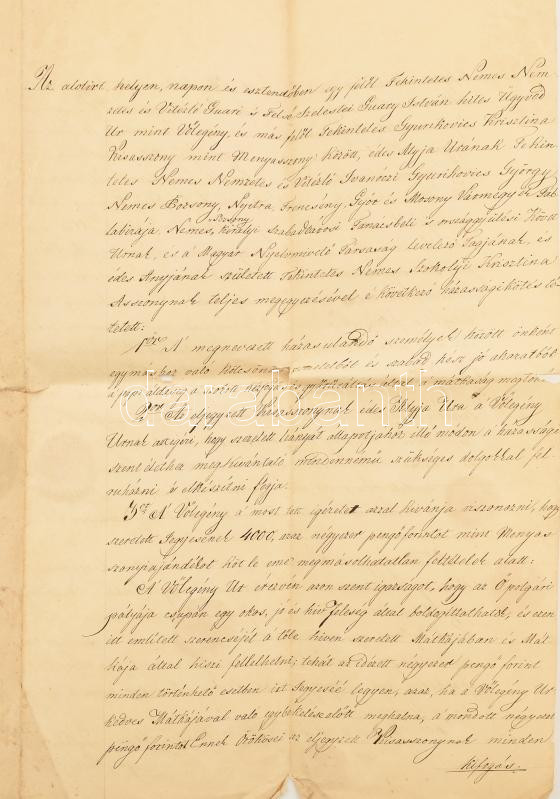 Az alolirt helyen, napon és esztendőben egy felől Tekintetes Nemes Nem-
zetes és Vitézlő Guari és Felső Szelestei Guary István hites Ügyvéd
Ur mint Völegény, és más felől Tekintetes Gyurikovics Krisztina
Kisasszony mint Menyasszony között, édes Atyja Urának Tekin-
tetes Nemes Nemzetes és Vitézlő Ivanóczi Gyurikovics György
Nemes Posony, Nyitra, Trencsény, Győr és Mosony Vármegyék Táb-
labirája, Nemes, királyi Posony szabad városi Tanácsbeli s országgyülési Követ
Urnak, és a Magyar Nyelvmivelő Társaság levelező Tagjának, és
édes Anyjának született Tekintetes Nemes Szokolyi Krisztina
Asszonynak teljes megegyezésével é következő házassági kötés lé-
tetett:
1ször A' megnevezett házasulandó személyek között önként
egymáshoz való kölcsönös szeretetből és szabad kész jó akaratból
a papi áldásig a szokott
2or Az eljegyzett kisasszonynak édes Atyja Ura a Völegény
Urnak aszyéri, hogy szeretett leányát állapotjához illő módon a házassági
szent élethez megkivántató mindennémű szükséges dolgokkal fel
ruházni és elkészitni fogja.
3or A' Völegény á most tett igéretet azzal kivánja viszonozni, hogy
szeretett Jegyesének 4000, azaz négyezer pengő forintot mint Menyas
szonyi ajándékot köt le eme megmásolhatatlan feltételek alatt:
A' Völegény Ur érezvén azon szent igazságot, hogy az Ő polgári
pályája csupán egy okos, jó és hiv Feleség által boldogittathatik, és ezen
itt emlitett szerencséjét á tőle hiven szeretett Mátkájában és Mát
kája által hiszi fellelhetni; tehát az idézett négyezer pengő forint
minden történhető esetben ezt Jegyeséé legyen, azaz, ha a Völegény Ur
kedves Mátkájával való egybekelés előtt meghalna, á mondott négyezer
pengő forintot Ennek Örökösei az eljegyzett Kisasszonynak minden
kifogás.
darabanth